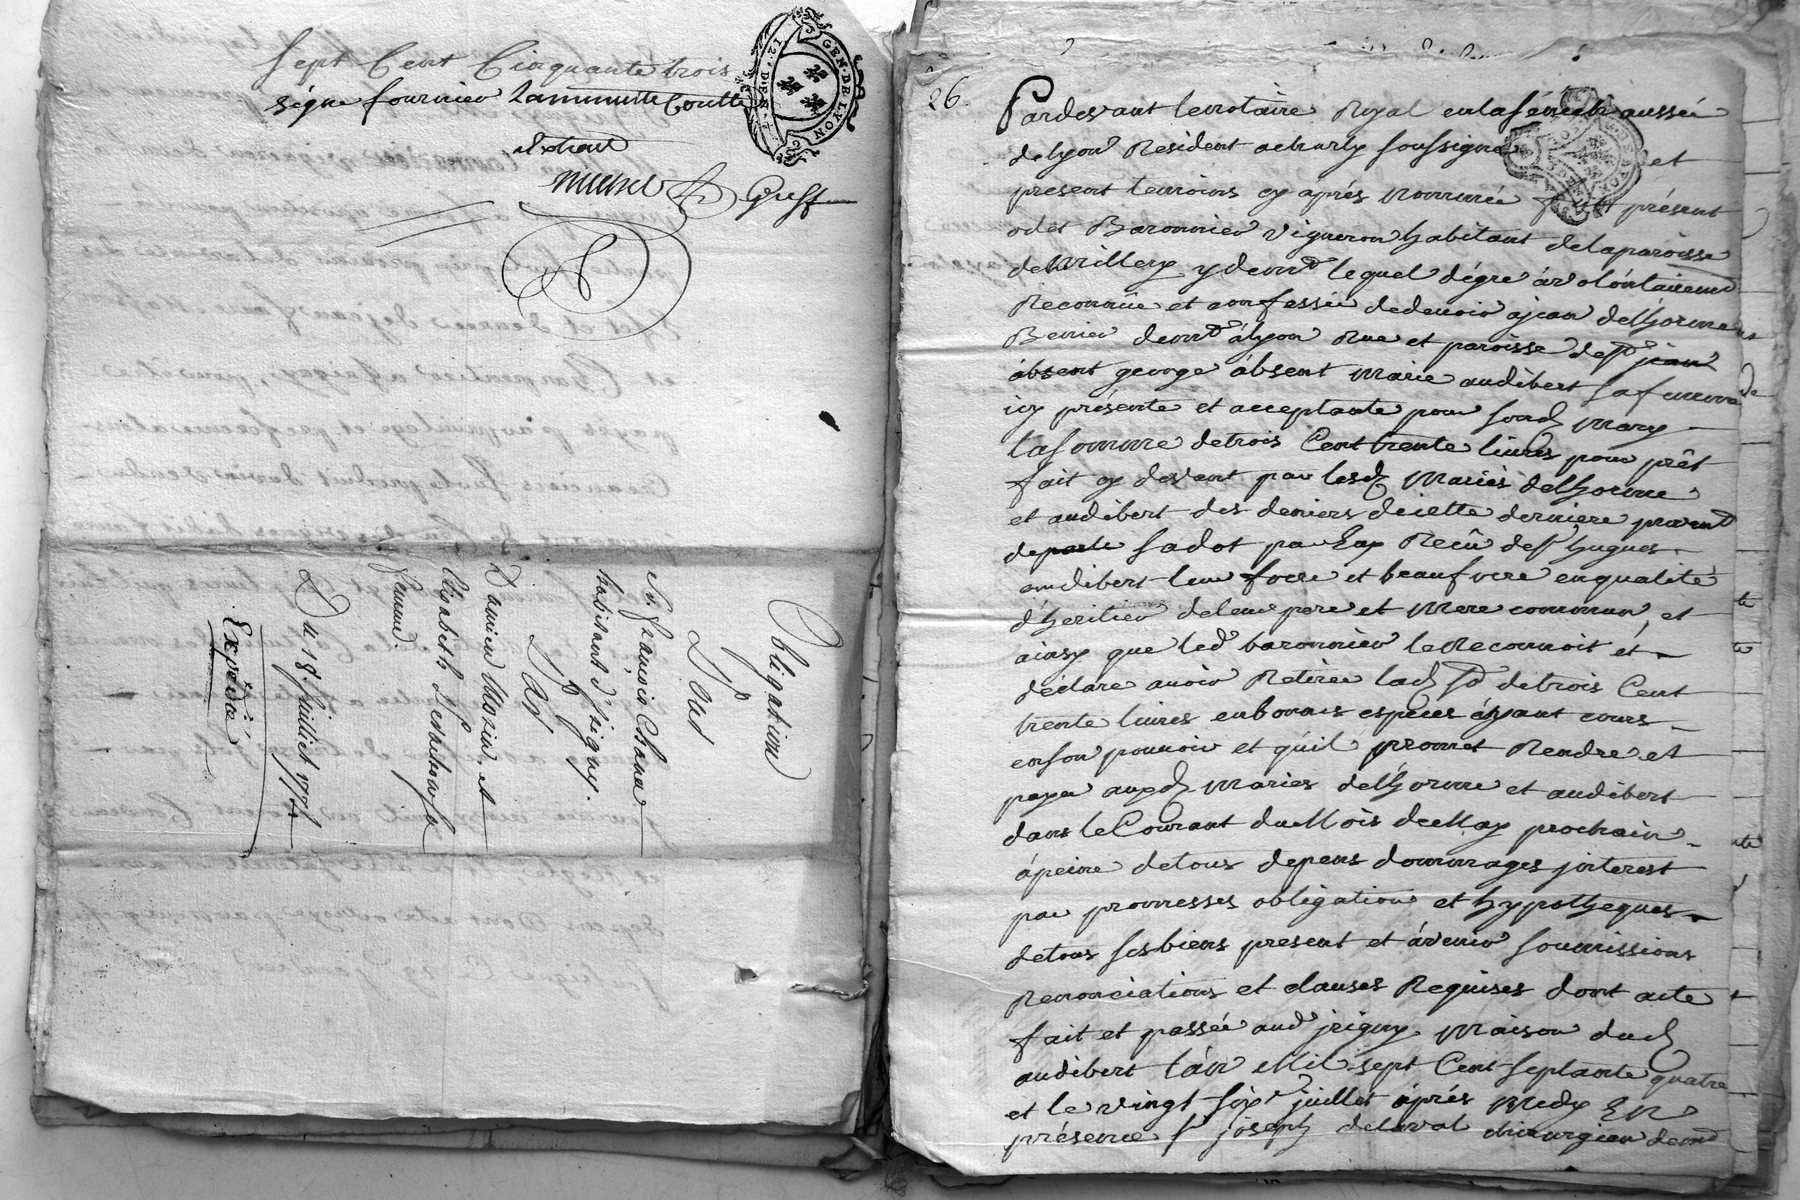 Sept Cent Cinquante trois
signe fournier Laminutte Contte
Extrait
michel Greff
GEN·DE·LYON
12·DEN·
Obligation
Pour
Sr. françois
habitant d'jrigny.
Damien Mozin, et
Elisabeth
femme.
Du 18e. juilliet 1774
Expédiée
26.
Pardevant lenotaire Royal enlasénechaussée
delyon Resident acharly soussigné et
present temoins cy aprés nommée fut présent
odet Baronnier vigneron habitant delaparoisse
demillery y demt. lequel dégre àvolontairement
Reconnüe et confessée dedevoir ajean delhorme
demt. àlyon Rue et paroisse de st jean
absent george àbsent marie audibert safemme
icy présente et acceptante pour sond mary
lasomme detrois Cent trente livres pour prêt
fait cy devent par lesd mariés delhorme
et audibert des deniers decette derniere provent
departi sadot par Elap Reçû de sr hugues
audibert leur frere et beaufrere enqualité
d'héritier deleur pere et mere commun, et
ainsy que led baronnier leReconnoit et
déclare avoir Retirée lad so detrois Cent
trente livres enbonnes espèces ayant cours
ensonpouvoir et qúil promet Rendre et
payer auxd mariés delhorme et audibert
dans leCourant duMois deMay prochain
ápeine detous depens dommages jnterest
par promesses obligation et hypotheques
detous sesbiens present et àvenir soumissions
Renonciations et clauses Requises dont acte
fait et passée aud jrigny maison dud
audibert làn Mil sept Cent septante quatre
et le vingt six juillet áprés Midy EN
présence sr joseph delaval chirurgien demt